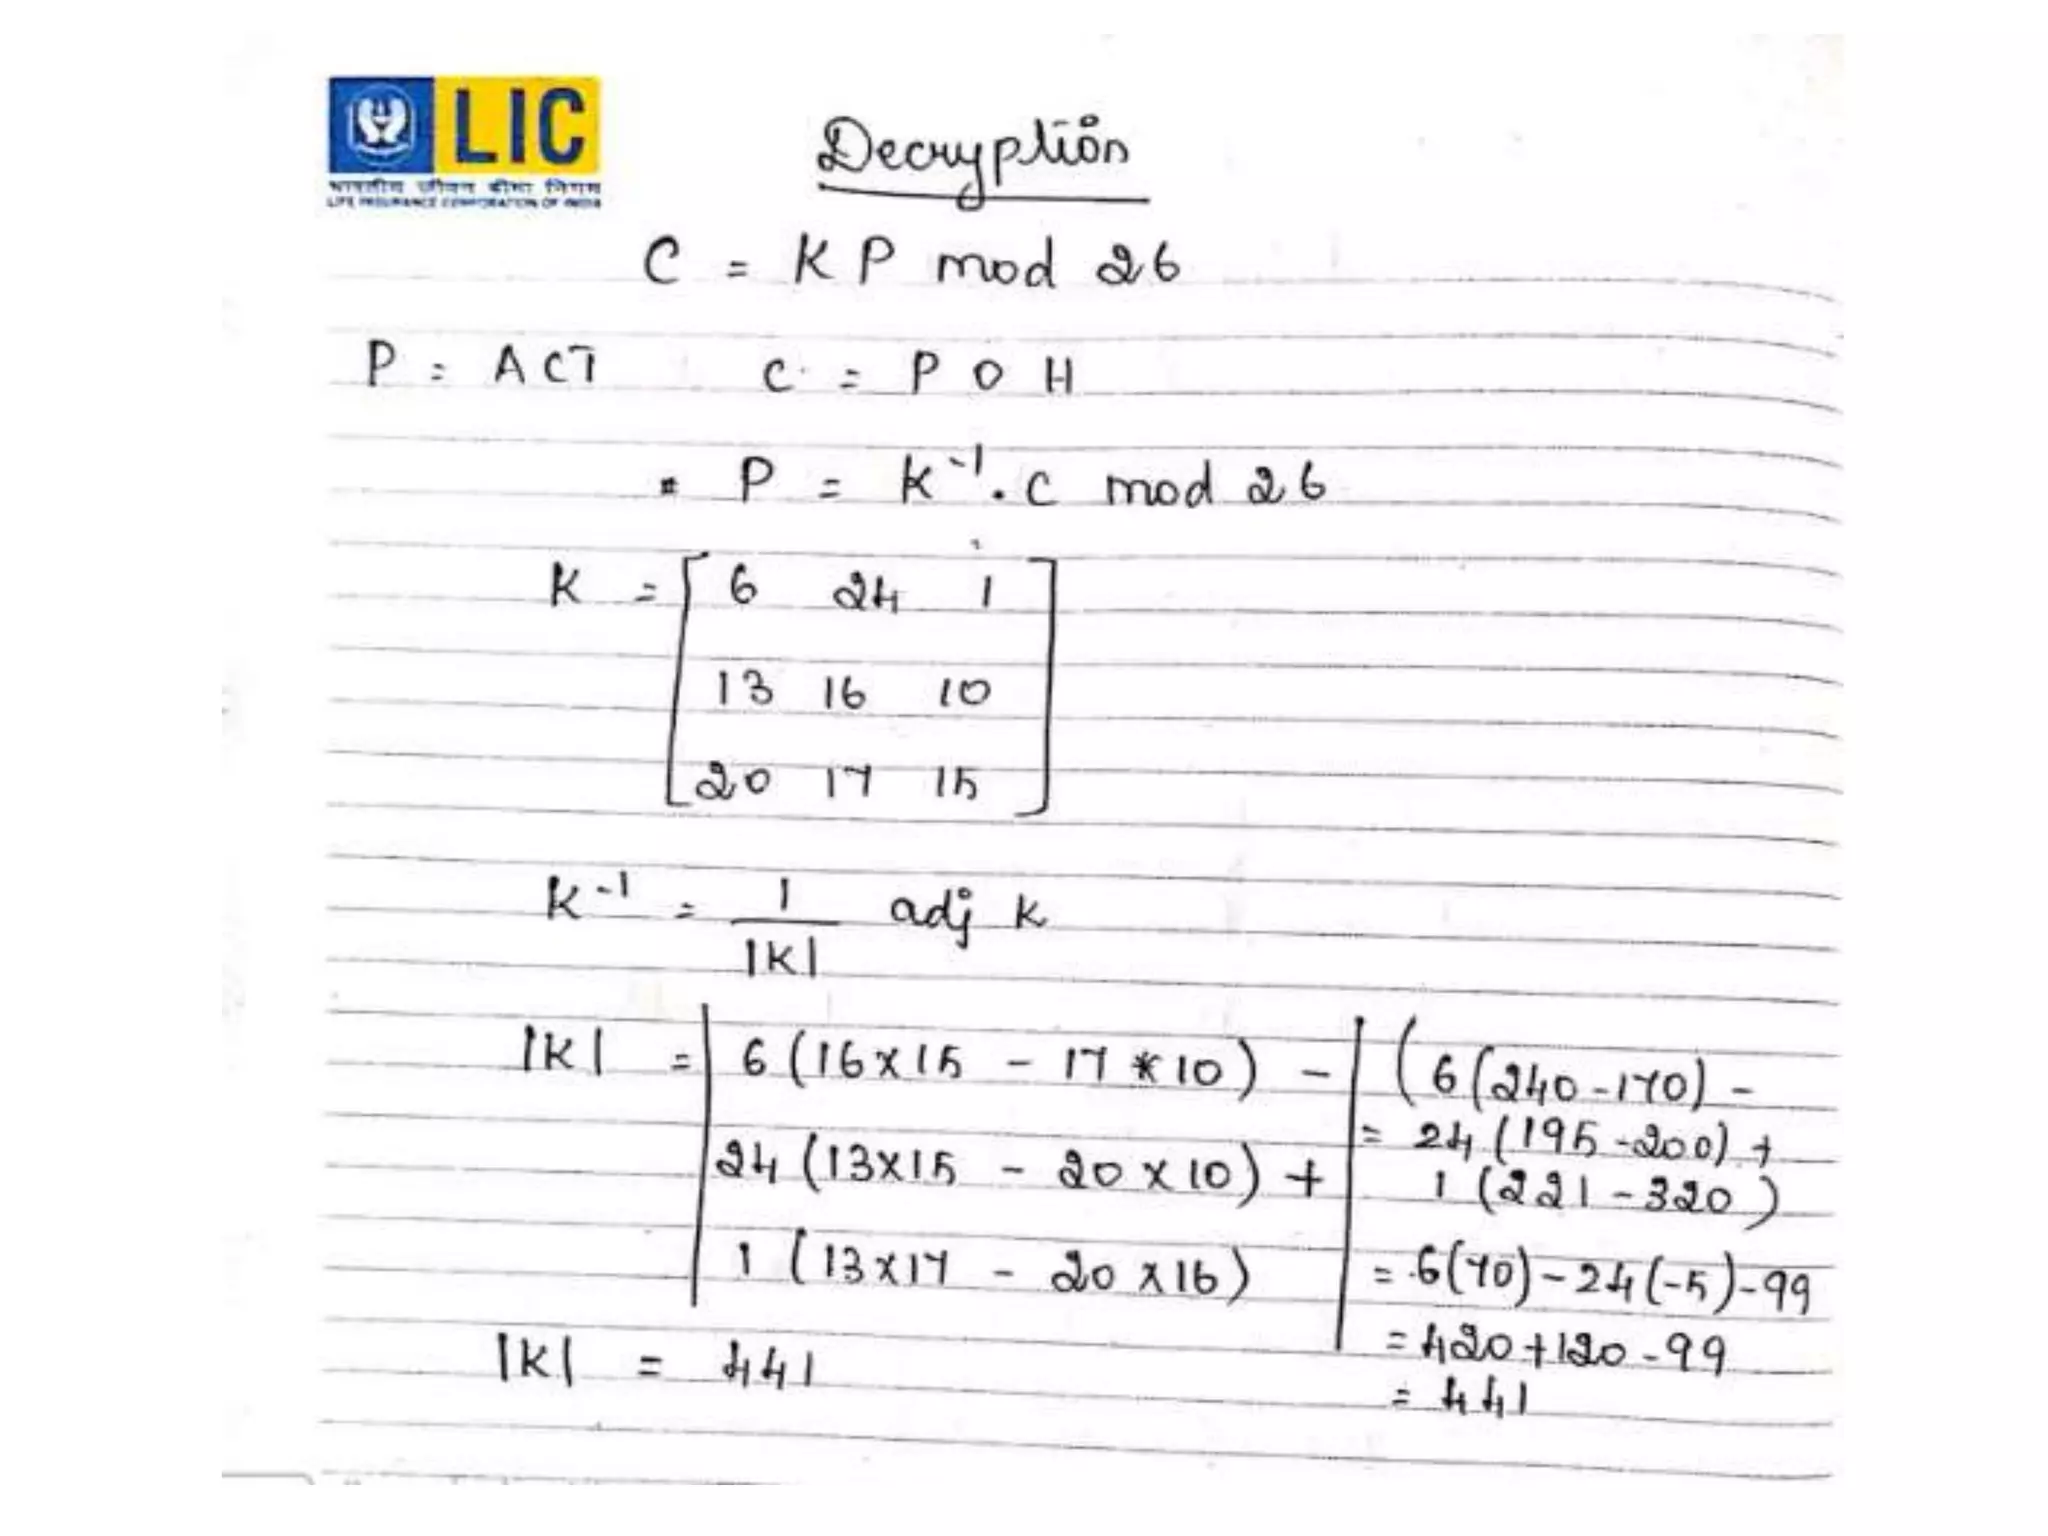 LIC
भारतीय जीवन बीमा निगम
LIFE INSURANCE CORPORATION OF INDIA
Decryption
C = K P mod 26
P = ACT C = P O H
P = K⁻¹ . C mod 26
K = [ 6 24 1
13 16 10
20 17 15 ]
K⁻¹ = 1/|K| adj K
|K| = | 6 (16x15 - 17 * 10) -
24 (13x15 - 20 x 10) +
1 (13x17 - 20 x 16)
|K| = 441
( 6(240-170) -
= 24 (195-200) +
1 (221-320)
= 6(70) - 24(-5) - 99
= 420 + 120 - 99
= 441